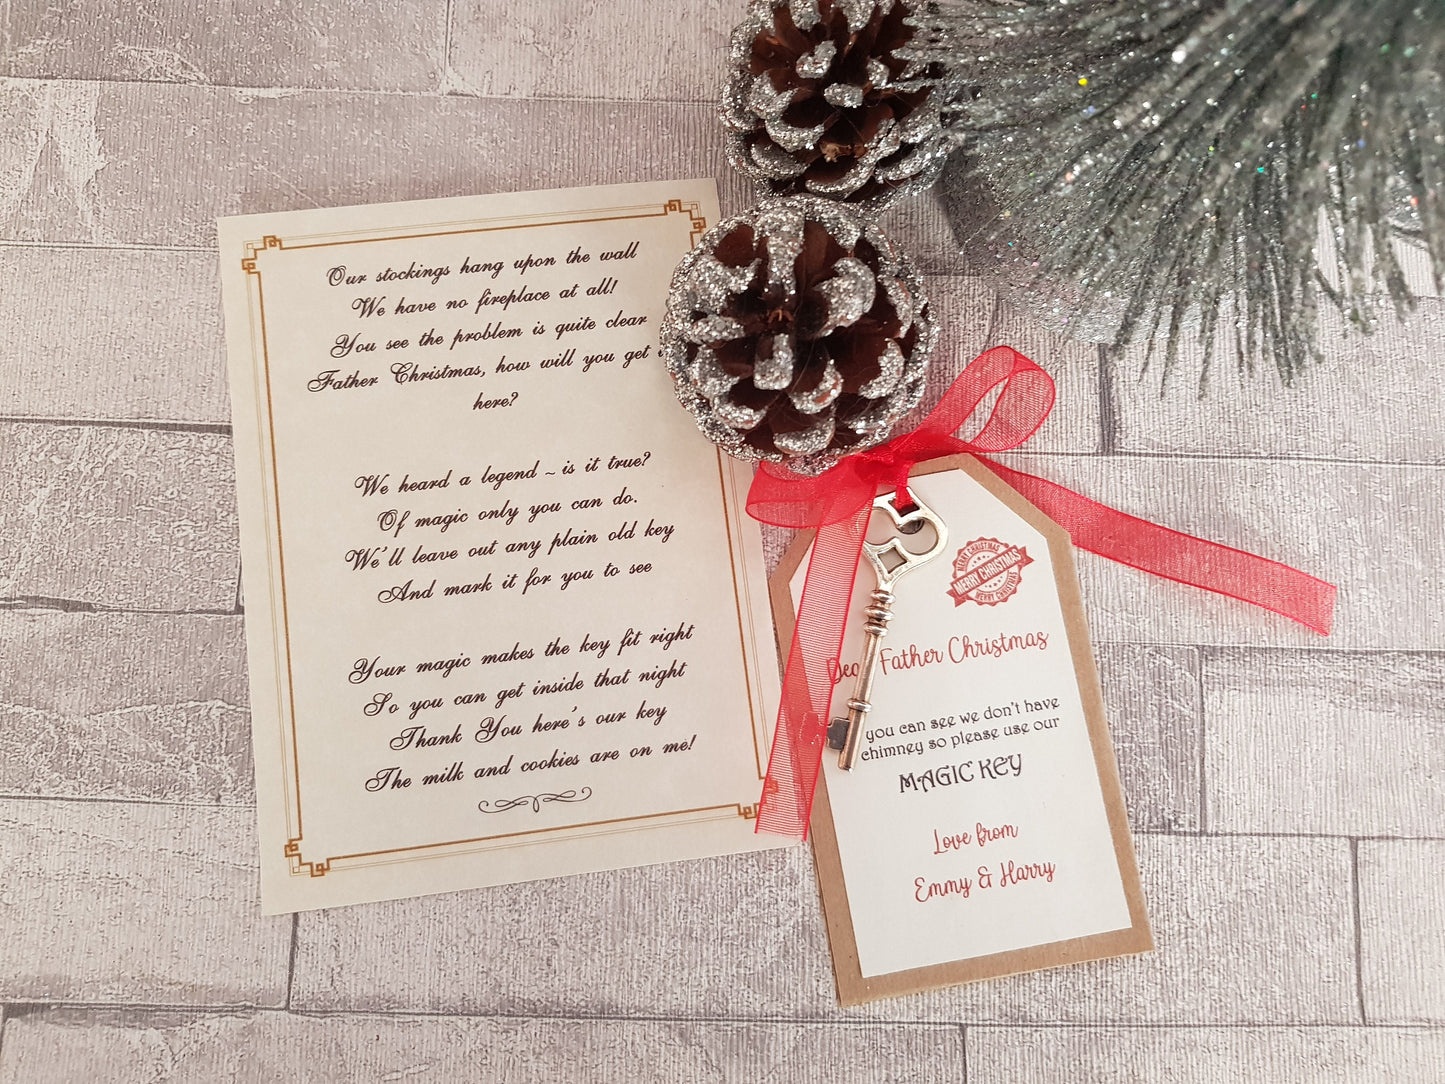 Our stockings hang upon the wall
We have no fireplace at all!
You see the problem is quite clear
Father Christmas, how will you get
here?
We heard a legend ~ is it true?
Of magic only you can do.
We'll leave out any plain old key
And mark it for you to see
Your magic makes the key fit right
So you can get inside that night
Thank You here's our key
The milk and cookies are on me!
MERRY CHRISTMAS
MERRY CHRISTMAS
MERRY CHRISTMAS
Father Christmas
you can see we don't have
chimney so please use our
MAGIC KEY
Love from
Emmy & Harry